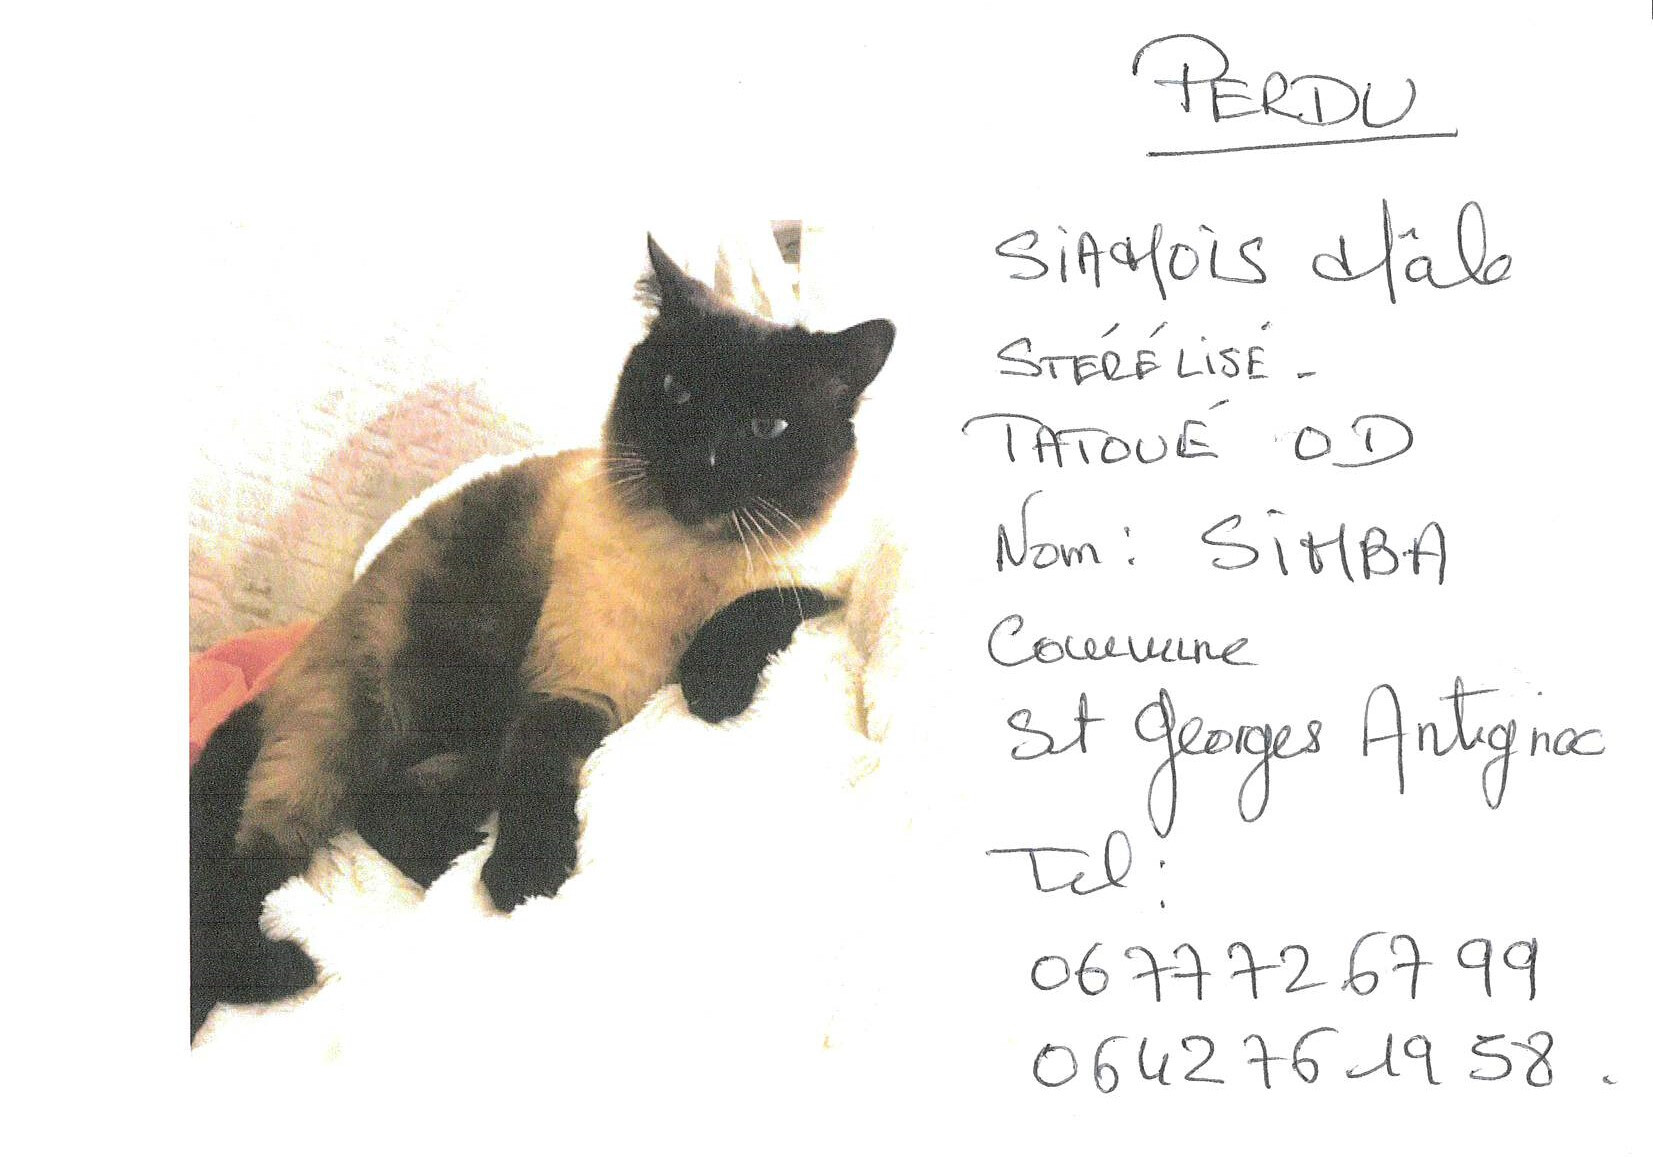 PERDU
SiAMOiS Mâle
STÉRÉLiSÉ.
TATOUÉ OD
Nom : SiMBA
Commune
St Georges Antignac
Tel :
06 77 72 67 99
06 42 76 19 58.